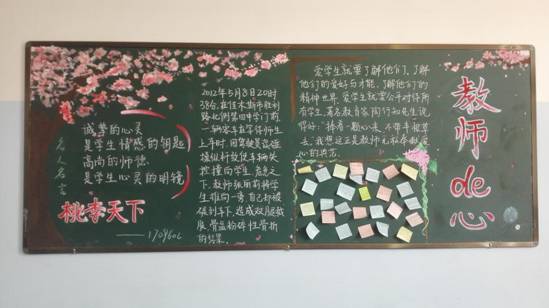 名人名言
诚挚的心灵
是学生情感的钥匙
高尚的师德
是学生心灵的明镜
桃李天下
——170960L
2012年5月8日20时
38分,在佳木斯市胜利
路北侧第四中学门前
一辆客车在等待师生
上车时,因驾驶员误碰
操纵杆致使车辆失
控撞向学生,危急之
下,教师张丽莉将学
生推向一旁,自己却被
碾到车下,造成双腿截
肢,骨盆粉碎性骨折
的结果。
爱学生就要了解他们,了解
他们的爱好与才能,了解他们的
精神世界,爱学生就需公平对待所
有学生,著名教育家陶行知先生说
得好:“捧着一颗心来,不带半根草
去。”我想这正是教师无私奉献爱
心的典范。
教师de心